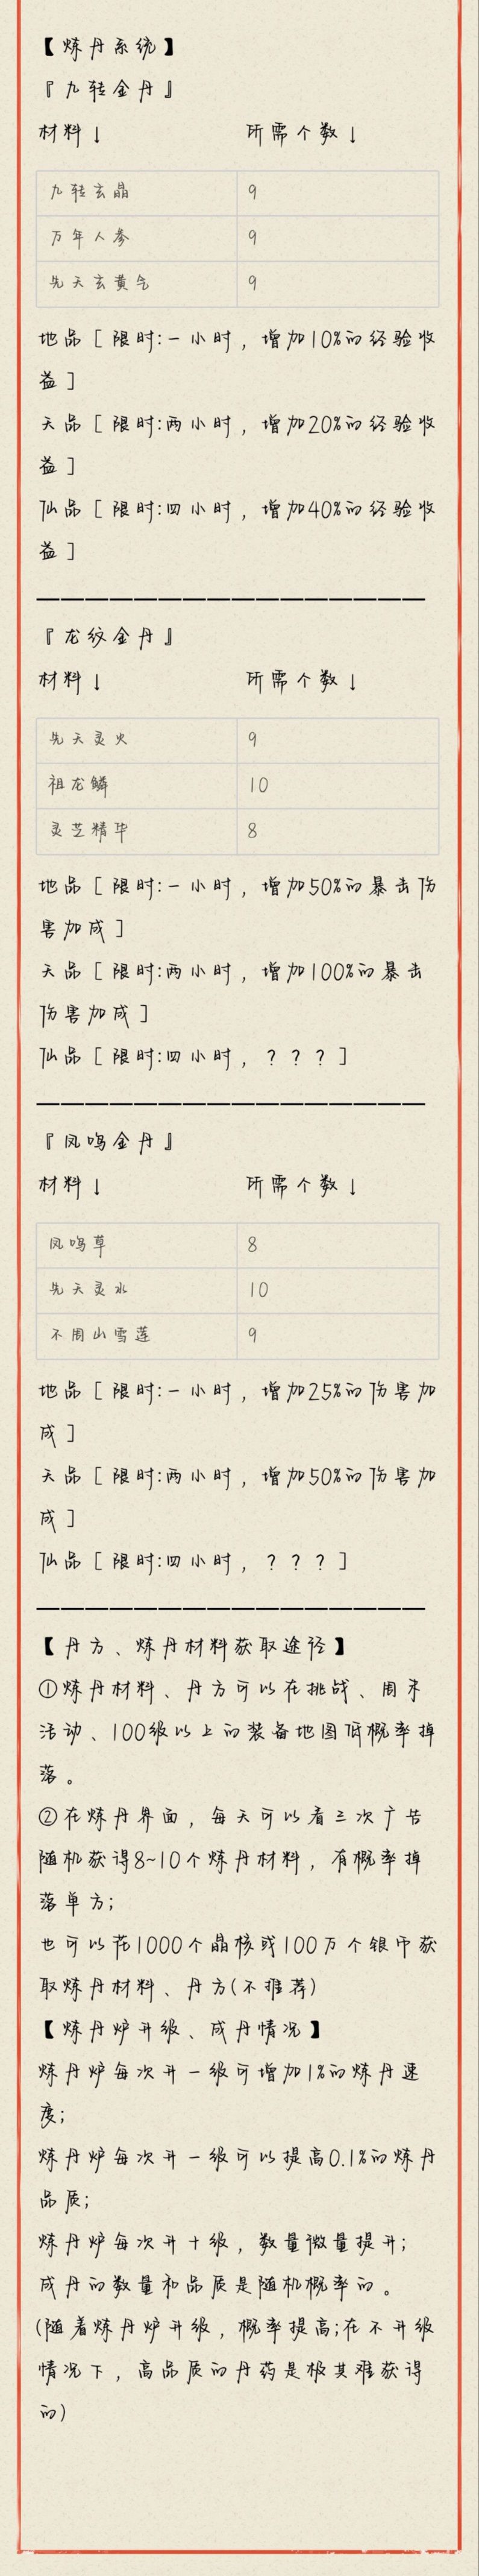 【炼丹系统】
『九转金丹』
材料↓ 所需个数↓
九转玄晶 9
万年人参 9
先天玄黄气 9
地品[限时:一小时，增加10%的经验收
益]
天品[限时:两小时，增加20%的经验收
益]
仙品[限时:四小时，增加40%的经验收
益]
————————————————
『龙纹金丹』
材料↓ 所需个数↓
先天灵火 9
祖龙鳞 10
灵芝精华 8
地品[限时:一小时，增加50%的暴击伤
害加成]
天品[限时:两小时，增加100%的暴击
伤害加成]
仙品[限时:四小时，？？？]
————————————————
『凤鸣金丹』
材料↓ 所需个数↓
凤鸣草 8
先天灵水 10
不周山雪莲 9
地品[限时:一小时，增加25%的伤害加
成]
天品[限时:两小时，增加50%的伤害加
成]
仙品[限时:四小时，？？？]
————————————————
【丹方、炼丹材料获取途径】
①炼丹材料、丹方可以在挑战、周末
活动、100级以上的装备地图低概率掉
落。
②在炼丹界面，每天可以看三次广告
随机获得8~10个炼丹材料，有概率掉
落单方;
也可以花1000个晶核或100万个银币获
取炼丹材料、丹方(不推荐)
【炼丹炉升级、成丹情况】
炼丹炉每次升一级可增加1%的炼丹速
度;
炼丹炉每次升一级可以提高0.1%的炼丹
品质;
炼丹炉每次升十级，数量微量提升;
成丹的数量和品质是随机概率的。
(随着炼丹炉升级，概率提高;在不升级
情况下，高品质的丹药是极其难获得
的)